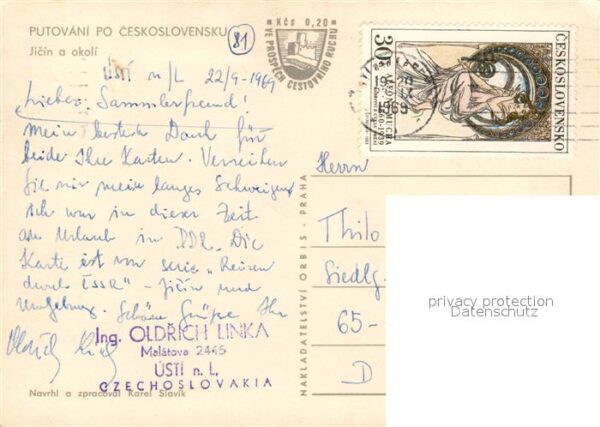 PUTOVÁNÍ PO ČESKOSLOVENSKU
Jičín a okolí
81
Kčs 0,20
VE PROSPĚCH CESTOVNÍHO RUCHU
30
ČESKOSLOVENSKO
MUCHA
1969
ÚSTÍ n/L 22/9-1969
Lieber Sammlerfreund!
Mein besten Dank für
beide Ihre Karten. Verzeihen
Sie mir mein langes Schweigen
Ich war in dieser Zeit
am Urlaub in DDR. Die
Karte ist von serie "Reisen
durch ČSSR" - Jičín und
Umgebung. Schöne Grüße Ihr
Oldřich
Ing. OLDŘICH LINKA
Malátova 2445
ÚSTÍ n. L.
CZECHOSLOVAKIA
Navrhl a zpracoval Karel Slavík
NAKLADATELSTVÍ ORBIS - PRAHA
Herrn
Thilo
Siedlg.
65-
D
privacy protection
Datenschutz